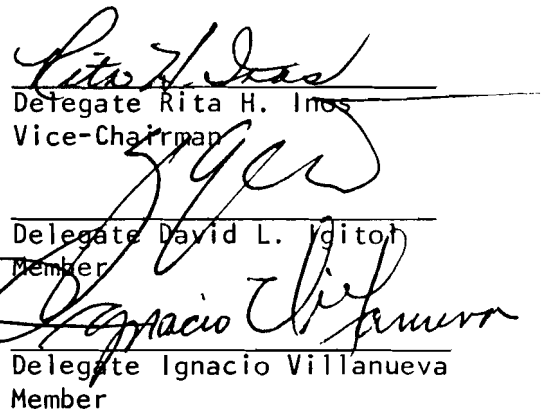 Rita H. Inos
Delegate Rita H. Inos
Vice-Chairman
Delegate David L. Igitol
Member
Ignacio Villanueva
Delegate Ignacio Villanueva
Member